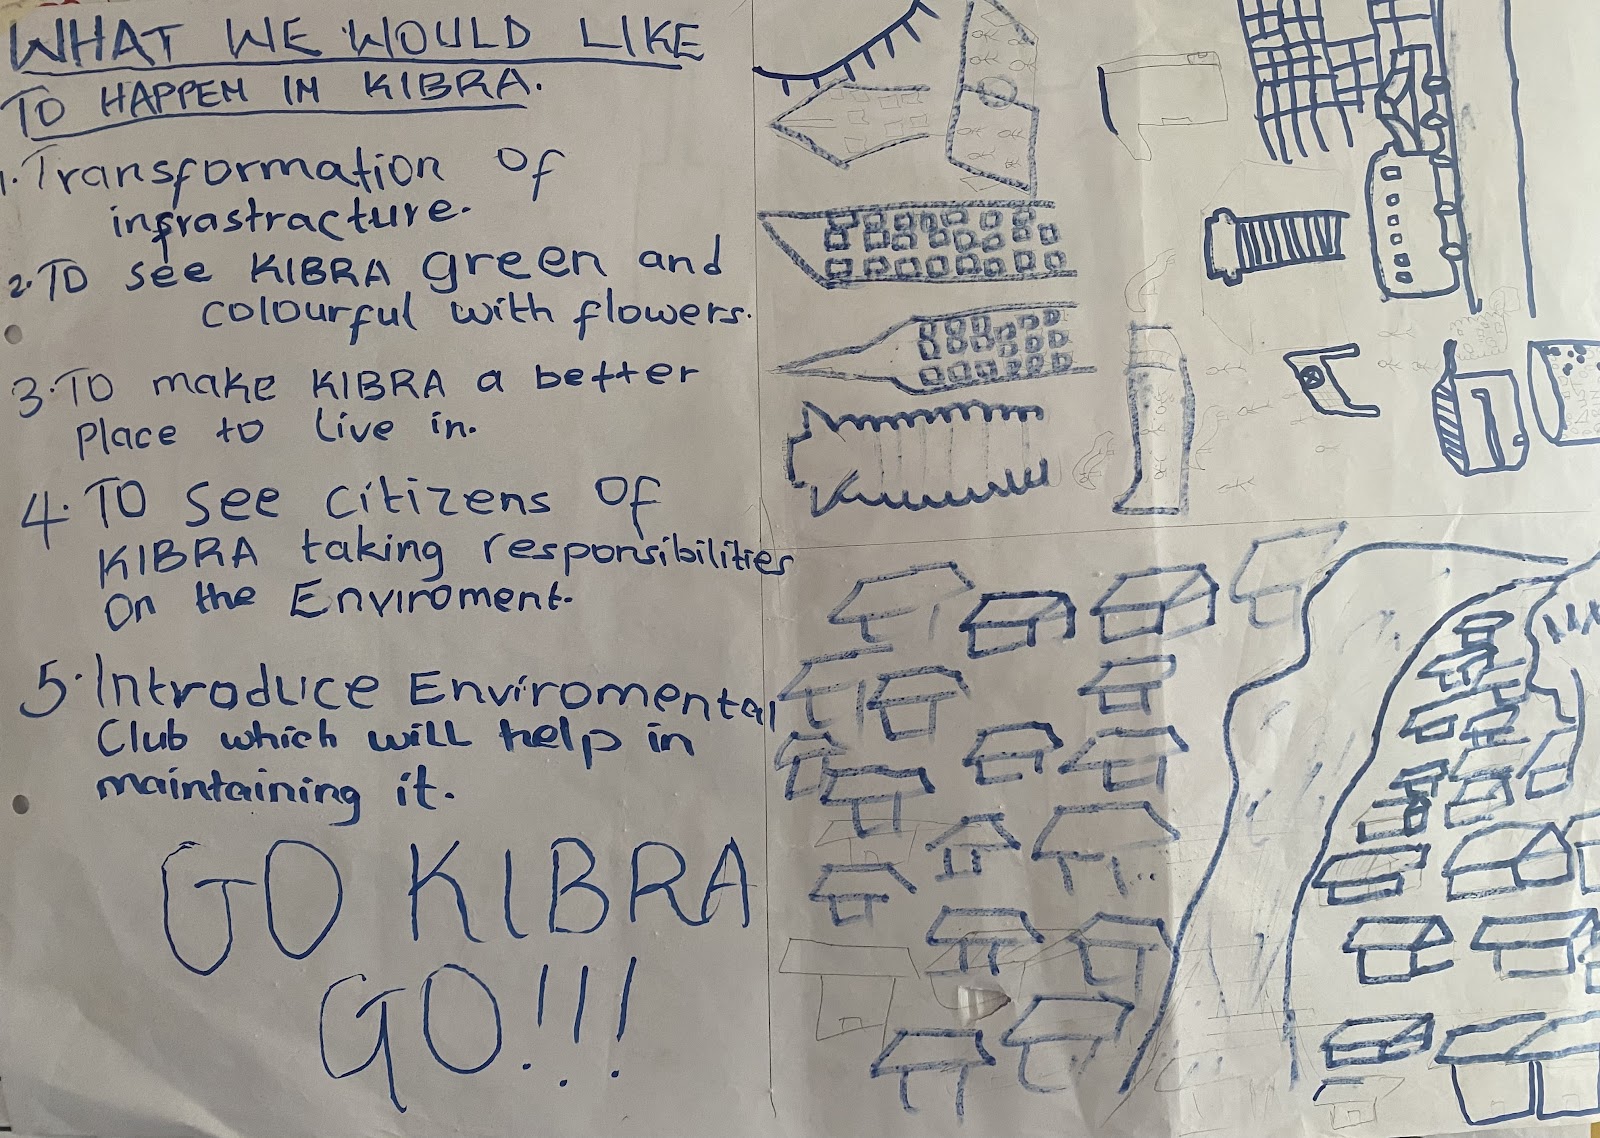 WHAT WE WOULD LIKE
TO HAPPEN IN KIBRA.
1. Transformation of
infrastracture.
2. TO see KIBRA green and
colourful with flowers.
3. TO make KIBRA a better
Place to live in.
4. TO see citizens of
KIBRA taking responsibilities
On the Enviroment.
5. Introduce Enviromental
Club which will help in
maintaining it.
GO KIBRA
GO!!!